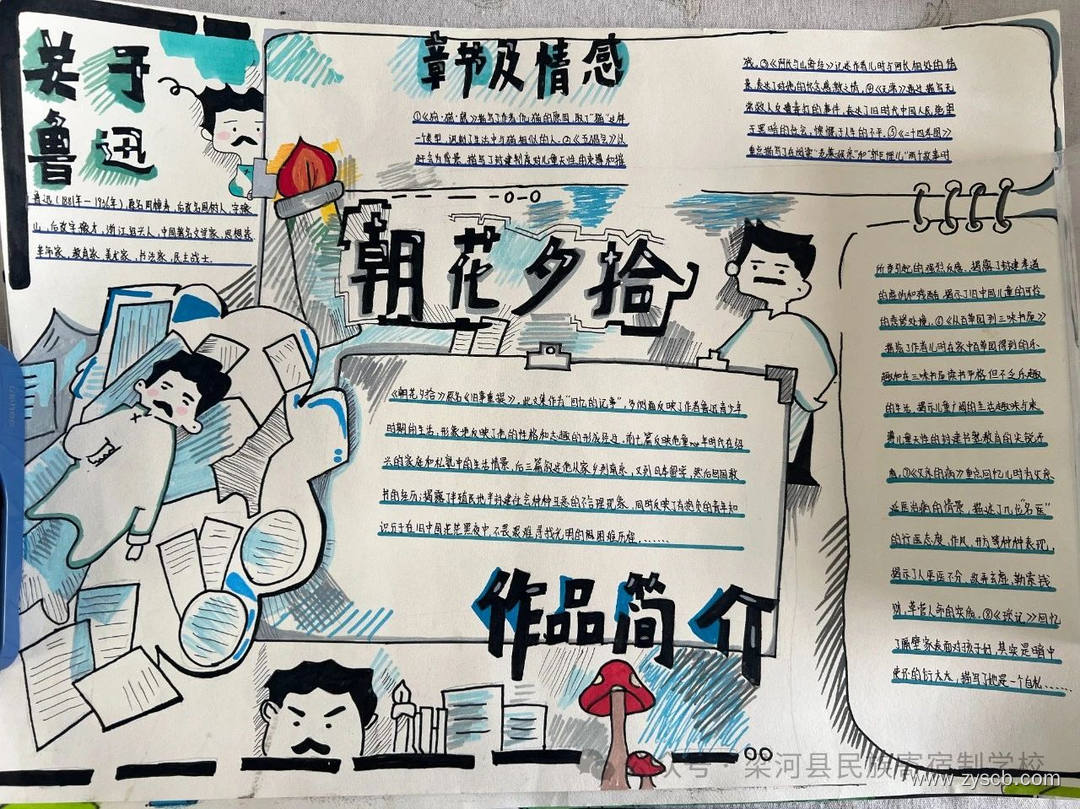 关于
鲁迅
鲁迅(1881年-1936年),原名周樟寿,后改名周树人,字豫
山,后改字豫才,浙江绍兴人,中国著名文学家、思想家
革命家、教育家、美术家、书法家、民主战士.
章节及情感
①《狗·猫·鼠》描写了作者仇猫的原因,取了"猫"这样
一个类型,讽刺了生活中与猫相似的人。②《五猖会》以
赶会为背景,描写了封建制度对儿童天性的束缚和摧
残。③《阿长与山海经》记述作者儿时与阿长相处的情
景,表达了对她的怀念感激之情。④《无常》
⑤《二十四孝图》
重点描写了在阅读"老莱娱亲"和"郭巨埋儿"两个故事时
所引起的强烈反感,揭露了封建孝道
的虚伪和残酷,揭示了旧中国儿童的可怜
的悲惨处境。⑥《从百草园到三味书屋》
描成了作者儿时在家中百草园得到的乐
趣和在三味书屋读书严格但不乏乐趣
的生活,揭示儿童广阔的生活趣味与束
缚儿童天性的封建书塾教育的尖锐矛
盾。⑦《父亲的病》重点回忆儿时为父亲
延医治病的情景,描述了几位"名医"
的行医态度、作风、开方等种种表现,
揭示了人巫医不分、故弄玄虚、勒索钱
财、草菅人命的实质。⑧《琐记》回忆
了隔壁家表面对孩子好,其实是暗中
使坏的衍太太,描写了她是一个自私......
朝花夕拾
《朝花夕拾》原名《旧事重提》,此文集作为"回忆的记事",多侧面反映了作者鲁迅青少年
时期的生活,形象地反映了他的性格和志趣的形成经过。前七篇反映他童年时代在绍
兴的家庭和私塾中的生活情景,后三篇叙述他从家乡到南京,又到日本留学,然后回国教
书的经历;揭露了半殖民地半封建社会种种丑恶的不合理现象,同时反映了有抱负的青年知
识分子在旧中国茫茫黑夜中,不畏艰难,寻找光明的困难历程,......
作品简介
公众号·梁河县民族寄宿制学校
www.zyscb.com